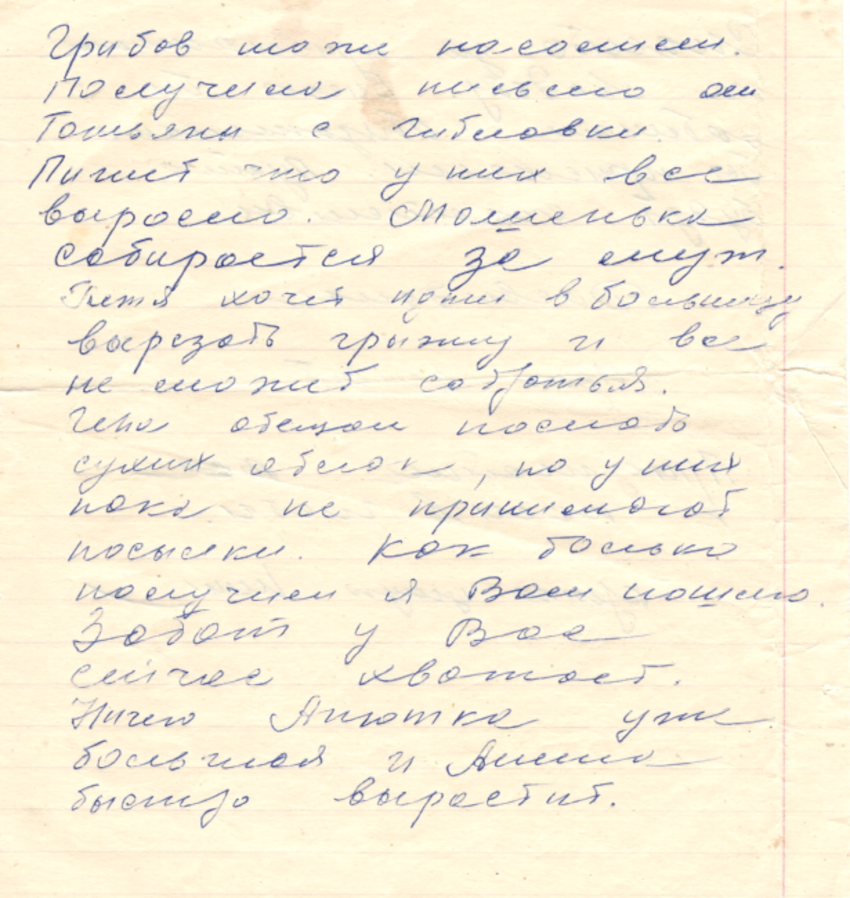 Грибов тоже насолили.
Получила письмо от
Татьяны с Гибловки.
Пишет что у них все
выросло. Машенька
собирается за муж.
Петя хочет идти в больницу
вырезать грыжу и все
не может собраться.
Гена обещал послать
сухих яблок, но у них
пока не принимают
посылки. Как только
получим я Вам пошлю.
Забот у Вас
сейчас хватает.
Ничего Анютка уже
большая и Алина
быстро вырастит.